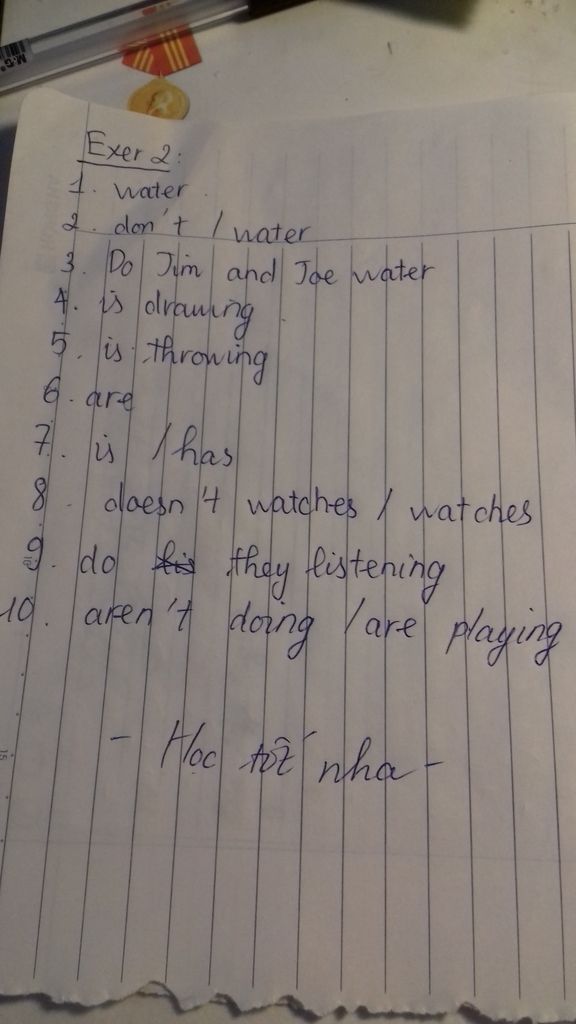 M&G
Exer 2:
1. water.
2. don't / water
3. Do Jim and Joe water
4. is drawing.
5. is throwing
6. are
7. is / has
8. doesn't watches / watches
9. do they listening
10. aren't doing / are playing
- Học tốt nha -